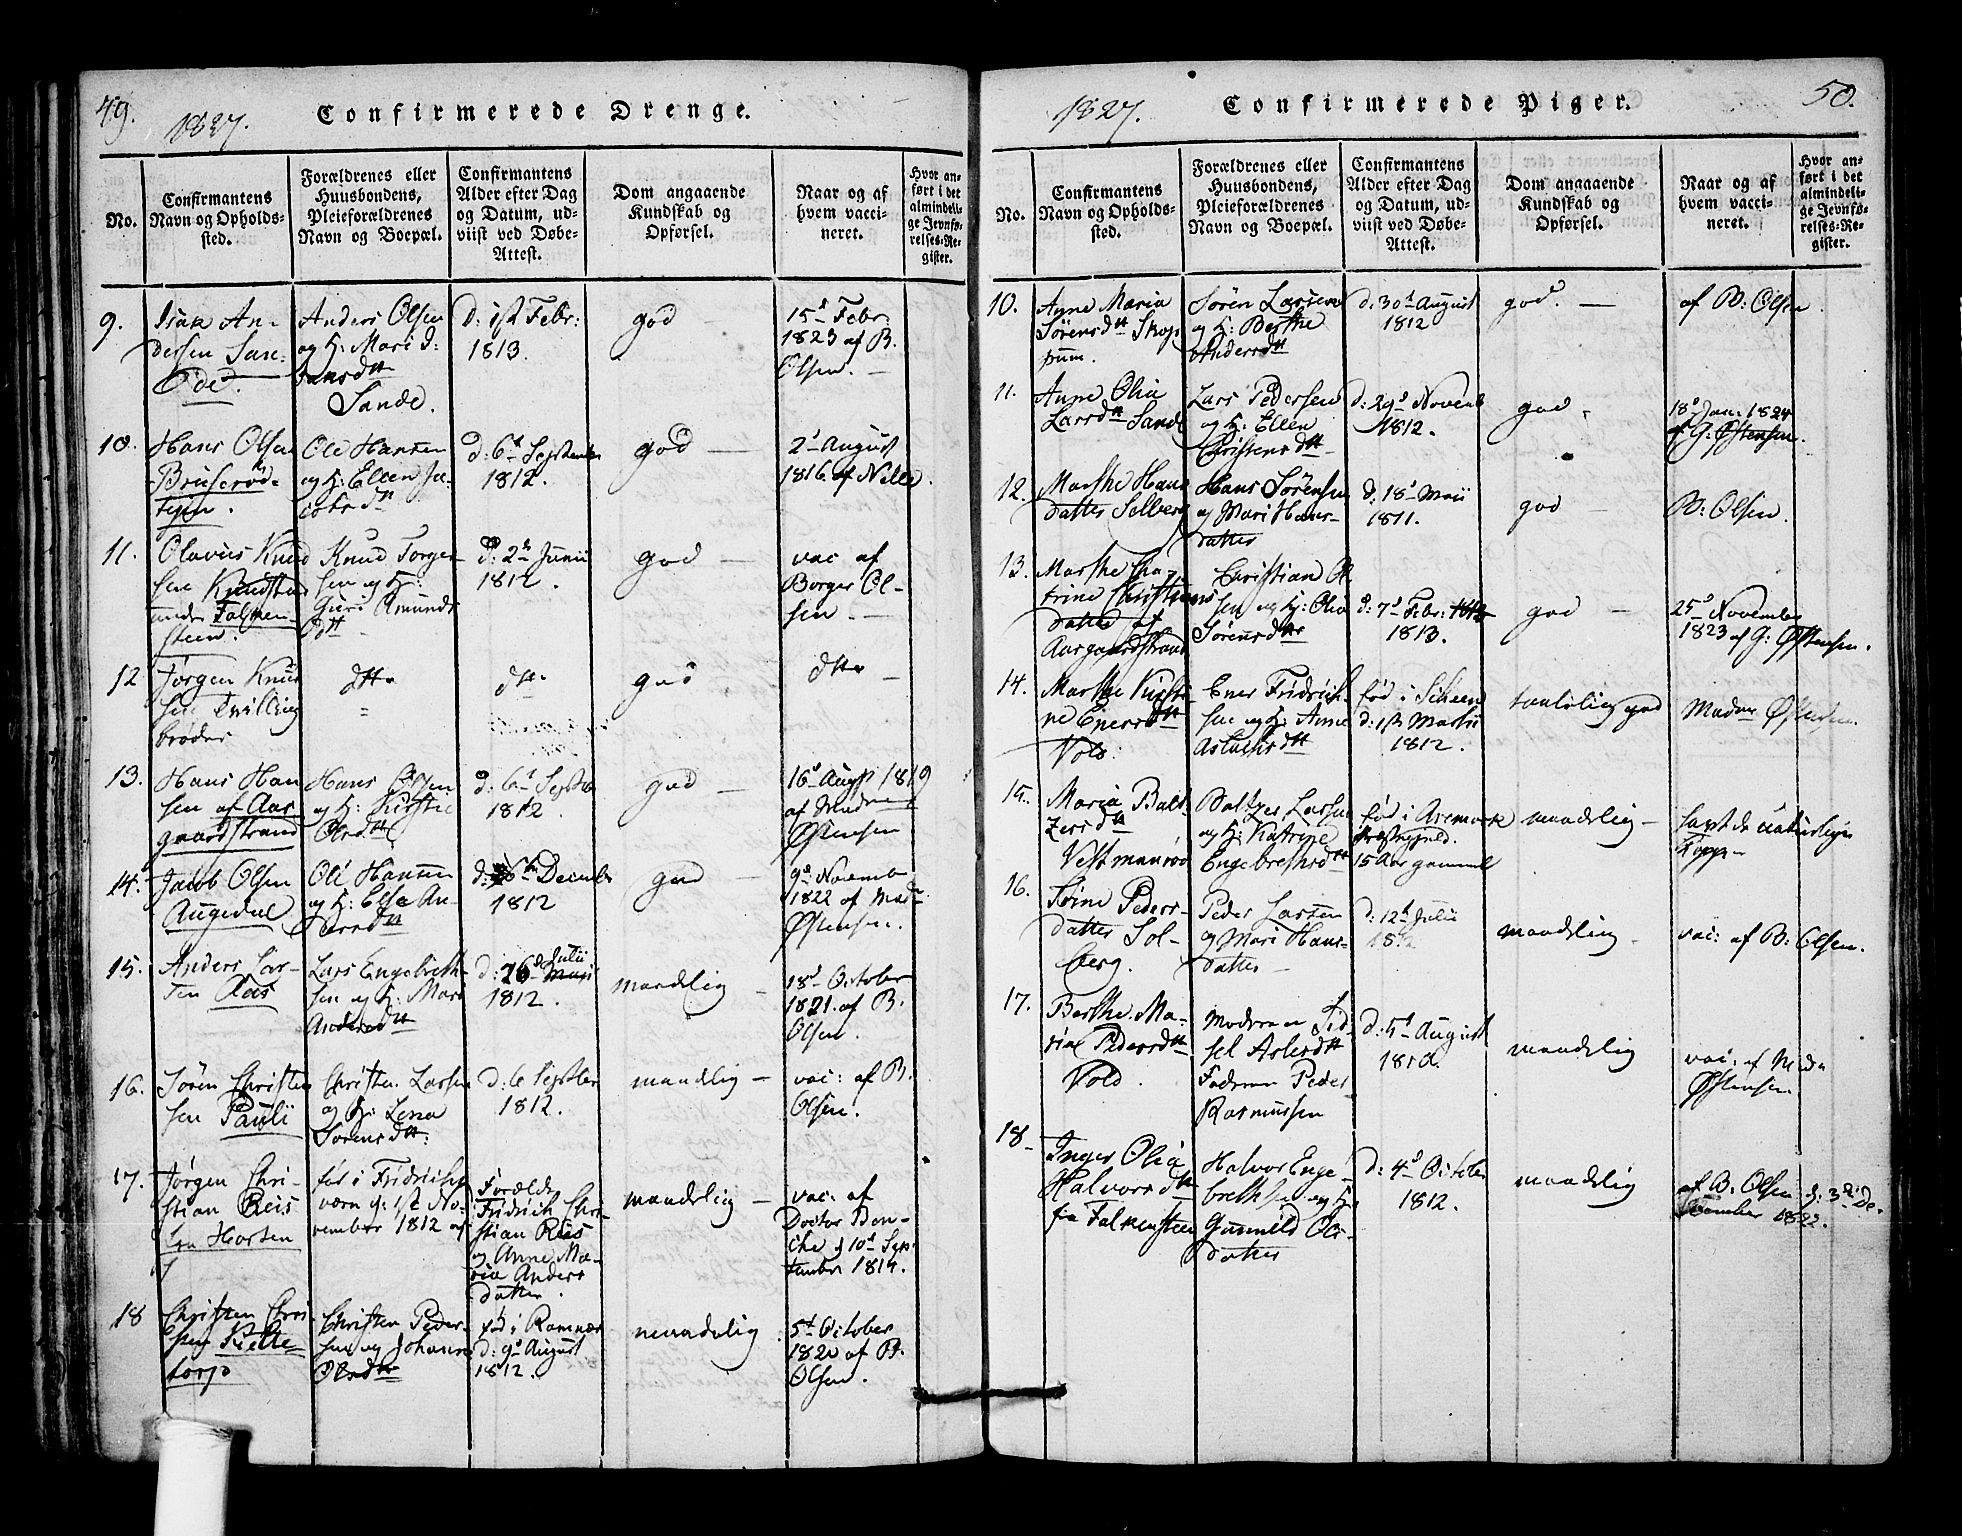 49.
1827.
Confirmerede Drenge.
No.
Confirmantens
Navn og Opholds-
sted.
Forældrenes eller
Huusbondens,
Pleieforældrenes
Navn og Boepæl.
Confirmantens
Alder efter Dag
og Datum, ud-
viist ved Døbe-
Attest.
Dom angaaende
Kundskab og
Opførsel.
Naar og af
hvem vacci-
neret.
Hvor an-
ført i det
almindeli-
ge Jevnfø-
relses-Re-
gister.
9.
Isak An-
dersen San-
Øde.
Anders Olsen
og H: Mari
Sande.
d: 1st Febr:
1813.
god
15d Febr:
1823 af B.
Olsen.
10.
Hans Olsen
Bruserød-
Ole Hansen
og H: Ellen Ja-
cobsdtt
d: 6t September
1812.
god
2d August
1816. af Nille.
11.
Olavus Knud
sen
under Falken-
steen.
Knud Torger-
sen og H:
Guri Amunds
dtt
d: 2d Junii
1812.
god
vac af
Borger Ol-
sen.
12
Jørgen Knud
sen Tvilling
broder
dtto
dtto
god
dtto
13.
Hans Han
sen af Aas
gaardstrand
Hans Olsen
og H: Kirstie
Olsdtt
d: 6t Septbr
1812.
god
16d Augst 1819
af Madme
Østensen
14.
Jacob Olsen
Augedal
Ole Hansen
og H: Else An-
dersdtt
December
1812
god
9d Novemb
1822 af Mad
Østensen.
15.
Anders Lar-
sen Aas
Lars Engebreth-
sen og H: Mari
Andersdtt
d: 26d Julii
1812.
maadelig
18d October
1821. af B.
Olsen.
16.
Søren Christen
sen Pauli
Christen Larsen
og H: Lena
Sorensdtt:
d: 6 Septbr
1812.
maadelig
vac: af B.
Olsen.
17.
Jørgen Chri-
stian Reis
fra Horten
fød i Fridrichs-
værn d: 1st No-
vember 1812 af
Forældre
Fridrich Chri-
stian Reis
og Anne Ma-
ria Anders
datter.
maadelig
vac: af
Doctor Ben-
che d 10d Sep-
tember 1814.
18
Christen Chri
sten Rette-
torp
Christen Peder-
sen og Johanne
Olsdtt
fød i Ramnæs
d: 9d August
1812.
maadelig
5t October
1820 af B.
Olsen.
50.
1827.
Confirmerede Piger.
No.
Confirmantens
Navn og Opholds-
sted.
Forældrenes eller
Huusbondens,
Pleieforældrenes
Navn og Boepæl.
Confirmantens
Alder efter Dag
og Datum, ud-
viist ved Døbe-
Attest.
Dom angaaende
Kundskab og
Opførsel.
Naar og af
hvem vacci-
neret.
Hvor an-
ført i det
almindeli-
ge Jevnfø-
relses-Re-
gister.
10.
Anne Maria
Sørensdtt Skop
pum.
Søren Larsen
og H: Berthe
Andersdtt
d: 30d August
1812
god.
af B: Olsen.
11.
Anne Olia
Larsdtt Sande
Lars Pedersen
og H: Ellen
Christensdtt
d: 29d Novemb
1812.
god
18d Jan: 1824
af G: Østensen.
12.
Marthe Hans
datter Solberg
Hans Sörensen
og Mari Hans-
datter
d: 18d Maii
1811.
god
B: Olsen.
13.
Marthe Cha-
trine Christians
datter af
Aasgaardstrand
Christian Ol
sen og H: Olia
Sørensdtt
d: 7d Febr:
1813.
god
25d November
1823 af G: Østensen.
14.
Marthe Kirsti
ne Enersdtt
Vold.
Ener Fridrich-
sen og H: Anne
Aslachsdtt
fød i Scheen
d: 1st Martii
1812.
taalelig god
Madme Østensen.
15.
Maria Balt
zersdtt
Vestmanrød
Baltzer Larsen
og H: Katrine
Engebrethsdtt
fød i Aremark
Præstegjeld.
15 Aar gammel
maadelig
havt de naturlige
Kopper
16.
Trine Peders-
datter Sol-
berg.
Peder Larsen
og Mari Hans-
datter
d: 12d Julii
1812
maadelig
vac: af B: Olsen.
17.
Berthe Ma-
ria Pedersdtt
Vold.
Moderen Sid-
sel Aslesdtt
Faderen Peder
Rasmussen
d: 5d August
1812.
maadelig
vac: af Madm
Østensen
18
Inger Olia
Halvorsdtt
fra Falkensteen
Halvor Enge-
brethsen og H:
Gunnild Ols-
datter
d: 4d October
1812.
maadelig
af B: Olsen d. 3d De-
cember 1822.